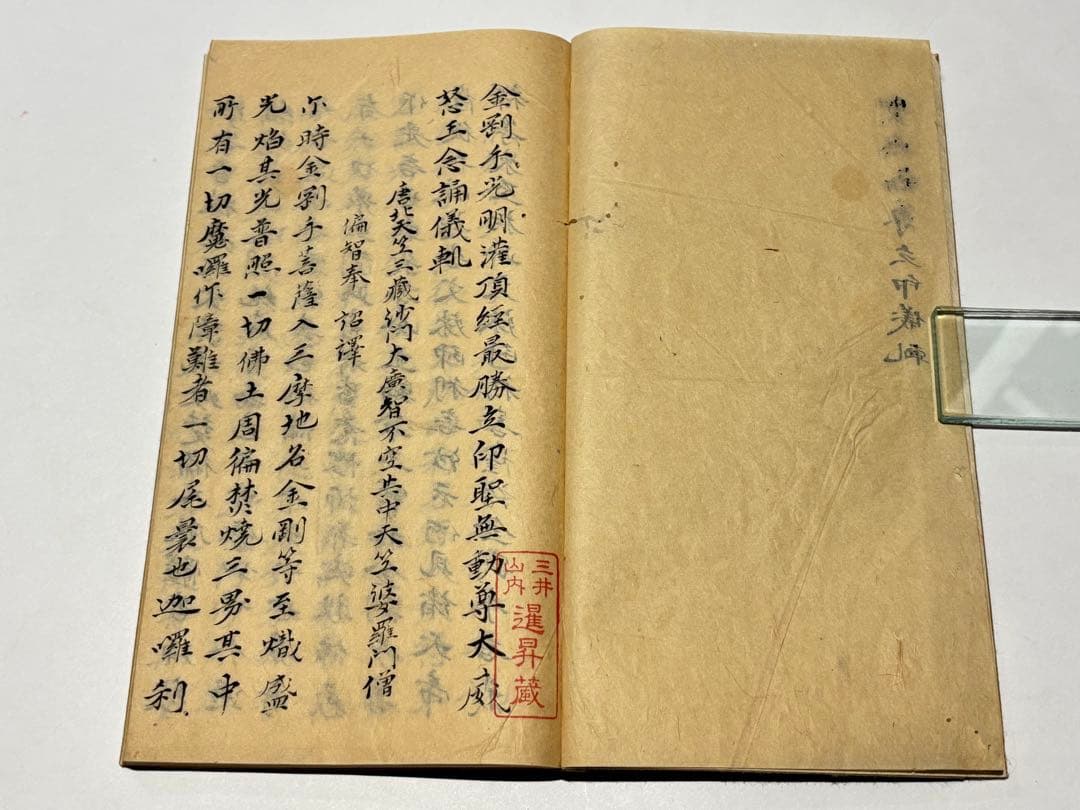 金剛手光明灌頂經最勝立印聖無動尊大威
怒王念誦儀軌
唐北天竺三藏沙門大廣智不空共中天竺婆羅門僧
徧智奉 詔譯
尒時金剛手菩薩入三摩地名金剛等至熾盛
光焰其光普照一切佛土周徧焚燒三界其中
所有一切魔囉作障難者一切尾曩也迦囉刹
三井
山内
暹昇蔵